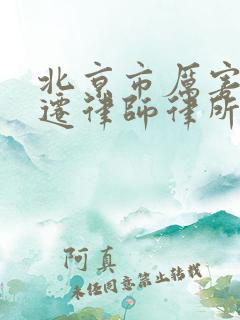 北京市厲害
遷律師律所
阿真
未经同意禁止转载